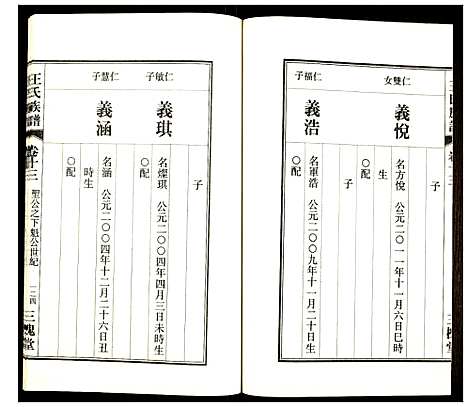 仁雙女
義悅
名方悅 公元二〇一一年十一月六日巳時
生
〇配
子
仁福子
義浩
名軍浩 公元二〇〇九年十一月二十日生
〇配
子
仁敏子
義琪
名燦琪 公元二〇〇四年四月三日未時生
〇配
仁慧子
義涵
名涵 公元二〇〇四年十二月二十六日丑
時生
〇配
王氏族譜
卷十三
聖公之下魁公世紀
三槐堂